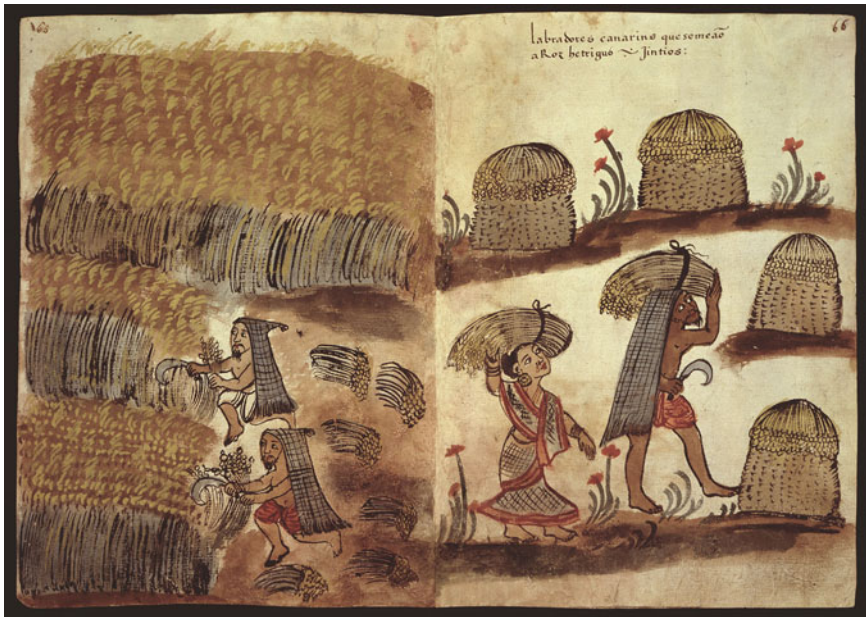 labradores canarins que semeaõ
aRoz hetrigus ~ Jintios:
66